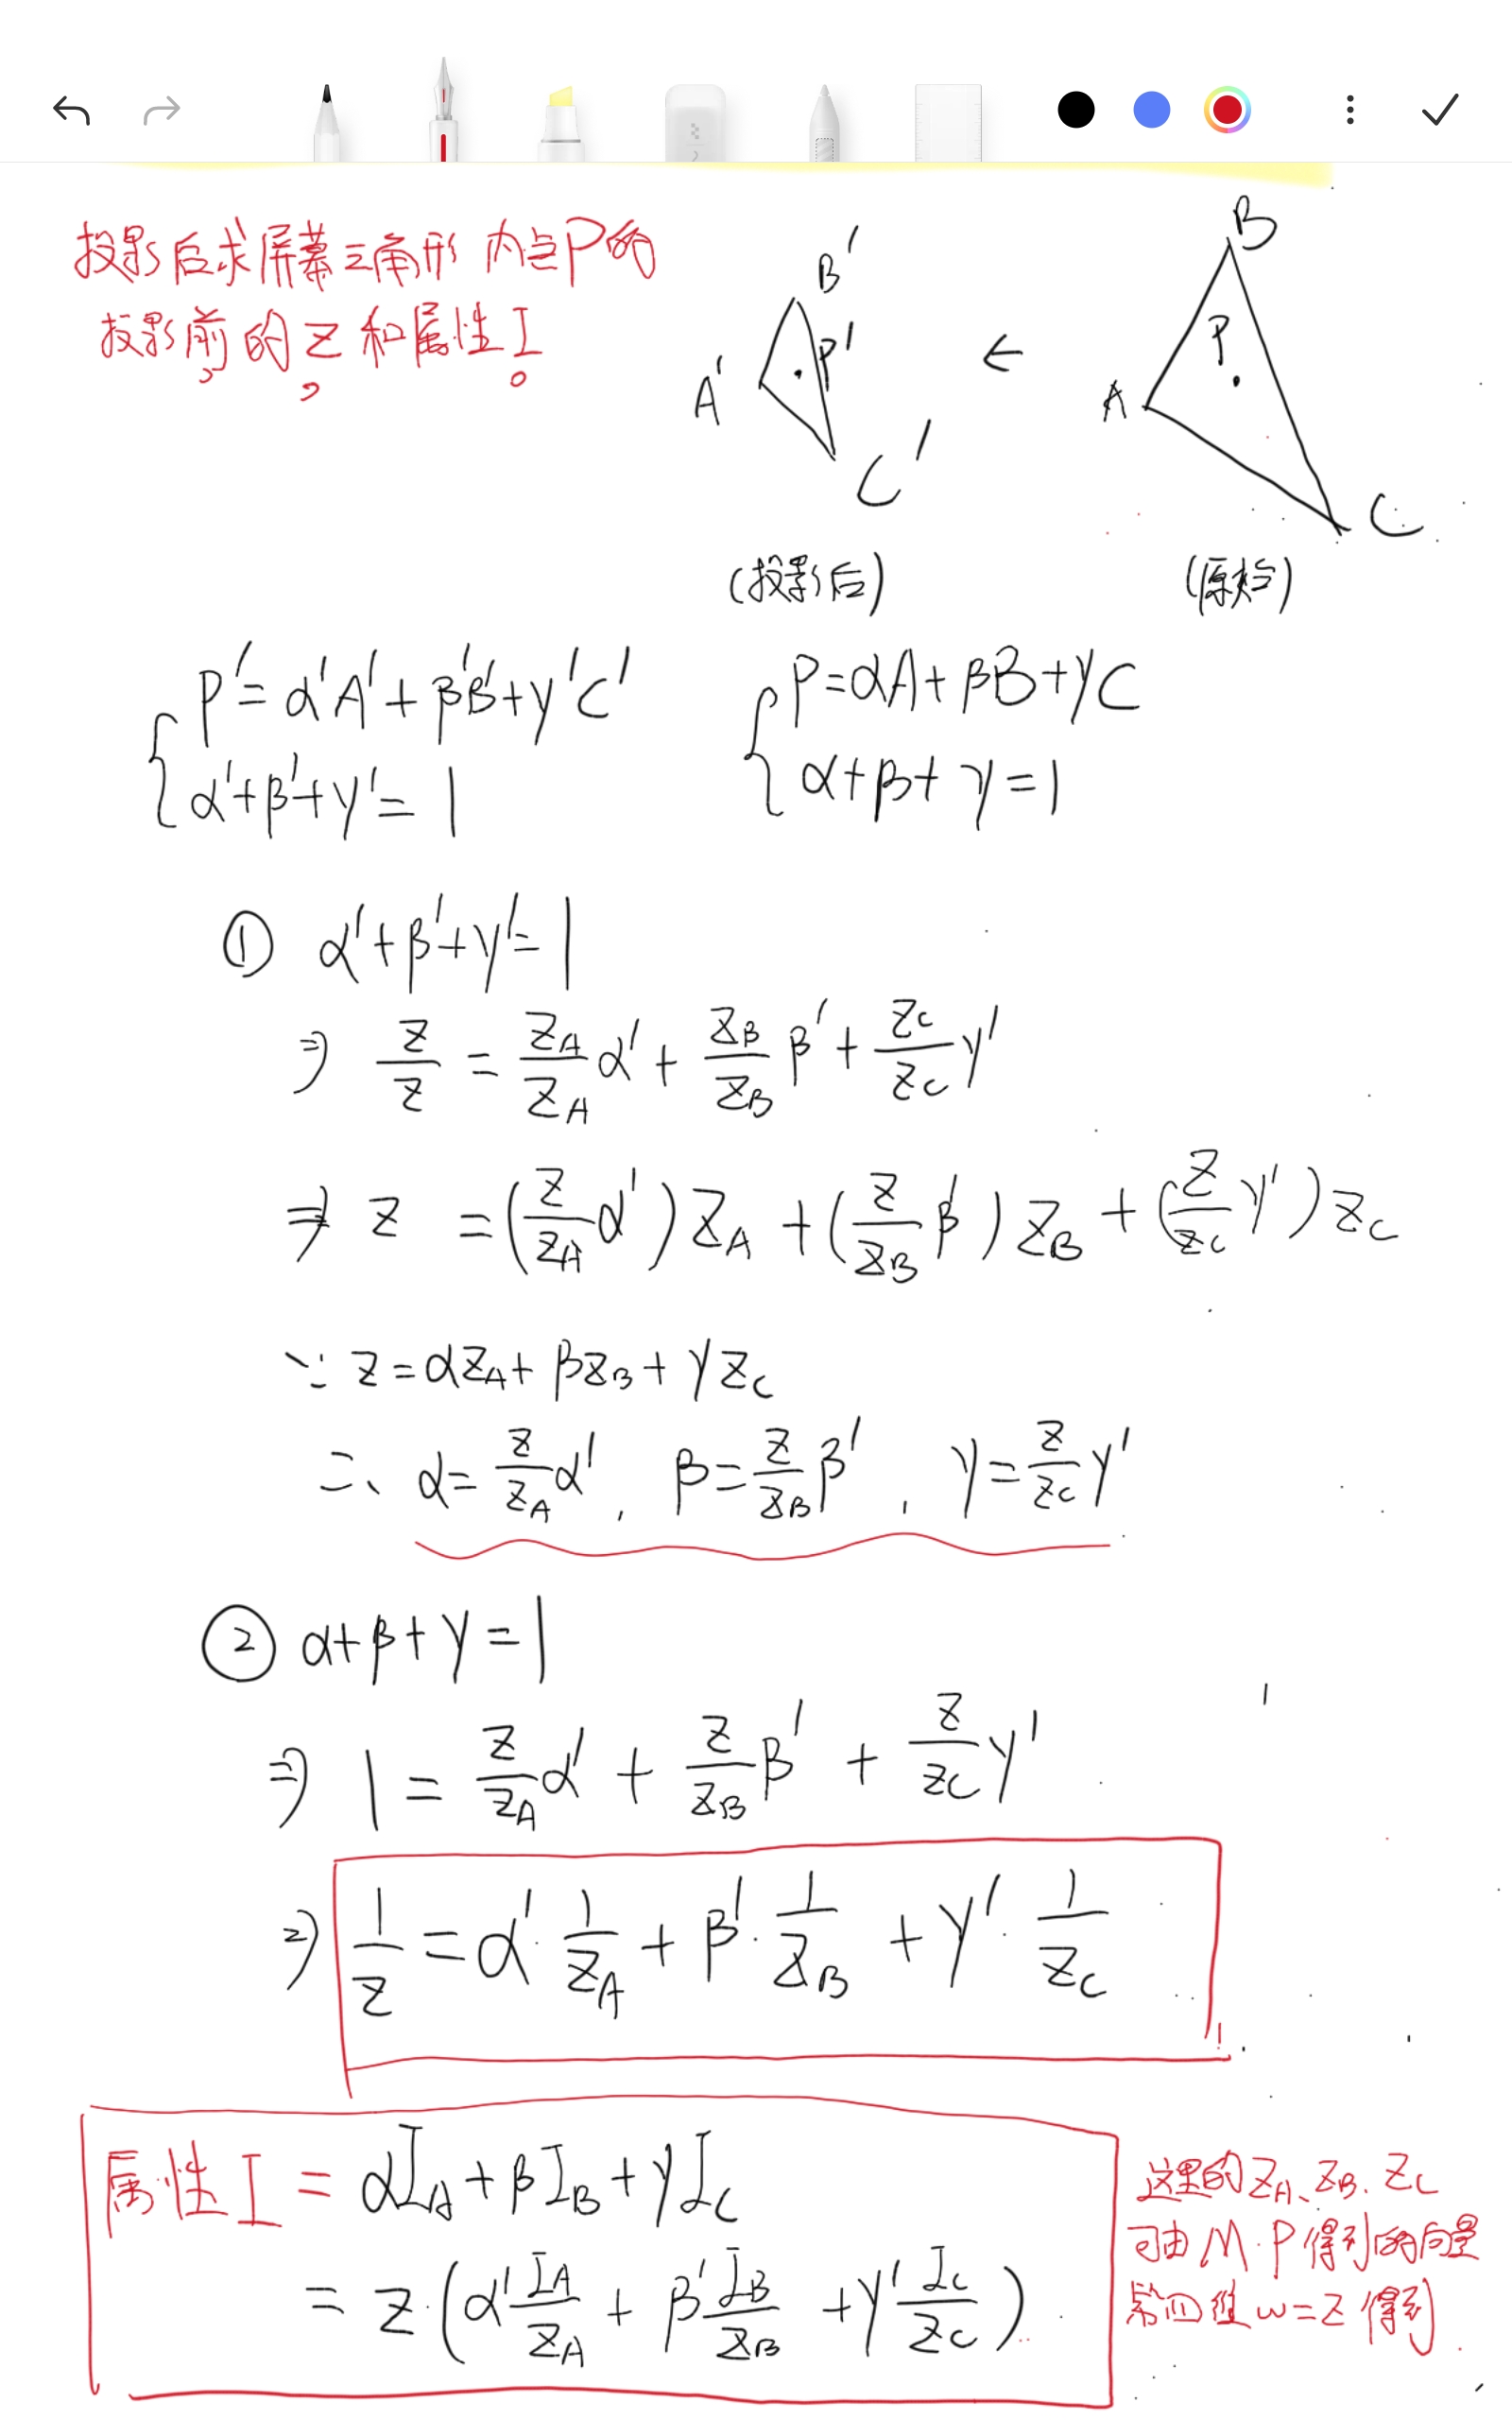 投影后求屏幕三角形内点P的
投影前的z和属性I。
B'
A'
P'
C'
←
B
P
A
C
(投影后)
(原始)
P'=α'A'+β'B'+γ'C'
α'+β'+γ'=1
P=αA+βB+γC
α+β+γ=1
① α'+β'+γ'=1
⇒ z/z = z_A/z_A α' + z_B/z_B β' + z_C/z_C γ'
⇒ z = (z/z_A α')z_A + (z/z_B β')z_B + (z/z_C γ')z_C
∵ z=αz_A+βz_B+γz_C
∴ α=z/z_A α', β=z/z_B β', γ=z/z_C γ'
② α+β+γ=1
⇒ 1 = z/z_A α' + z/z_B β' + z/z_C γ'
⇒ 1/z = α'·1/z_A + β'·1/z_B + γ'·1/z_C
属性I = αI_A+βI_B+γI_C
= z·(α' I_A/z_A + β' I_B/z_B + γ' I_C/z_C)
这里的z_A、z_B、z_C
可由M·P得到的向量
第四维w=z得到